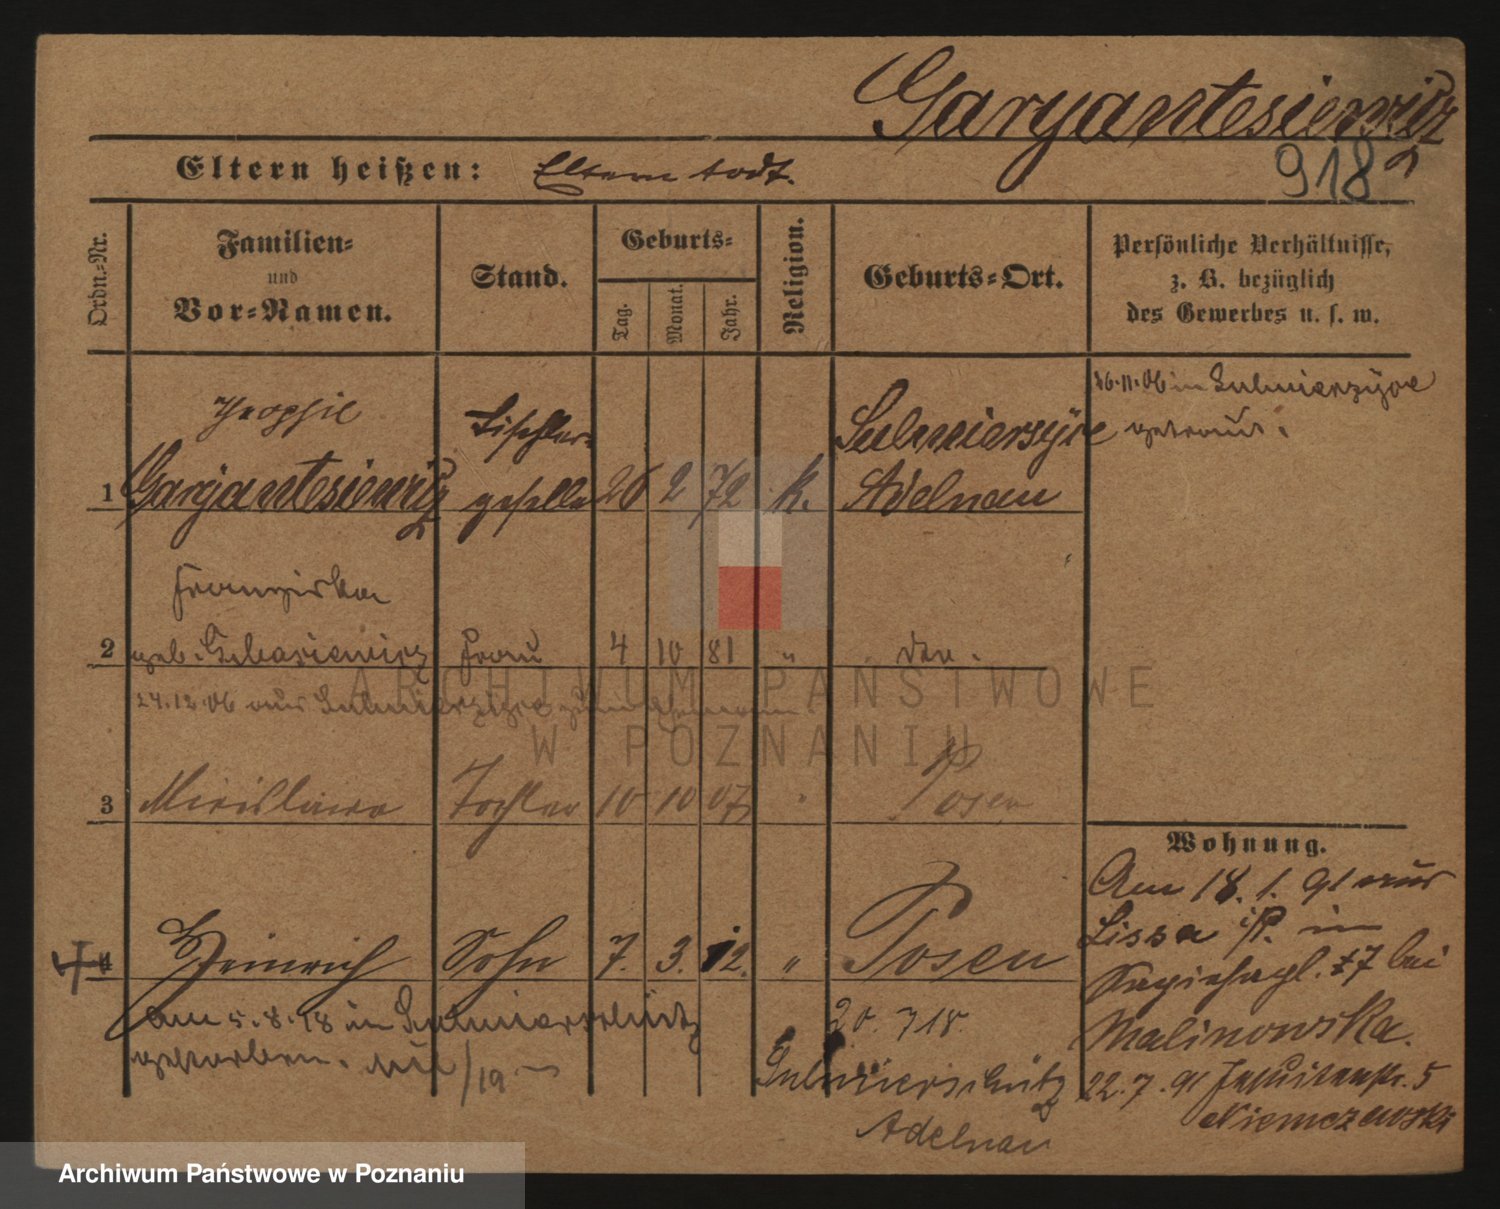 Garyantesiewicz
918
Eltern heißen: Eltern todt.
Ordn.-Nr.
Familien-
und
Vor-Namen.
Stand.
Geburts-
Tag.
Monat.
Jahr.
Religion.
Geburts-Ort.
Persönliche Verhältnisse,
z. B. bezüglich
des Gewerbes u. s. w.
Theophil Tischler- Sulmierzyce
1 Garyantesiewicz geselle 26 2 72 k. Adelnau
26.11.06 in Sulmierzyce
getraut.
Franziska
2 geb. Frau 4 10 81 " den.
24.12.06 aus Sulmierzyce zum Ehemann.
3 Miroslawa Tochter 10 10 07 " Posen
4 Heinrich Sohn 7. 3. 12. " Posen
am 5.8.18 in Sulmierschütz
gestorben. /19
20. 7 18
Sulmierschütz
Adelnau
Wohnung.
Am 18.1.91 aus
Lissa i/P. in
bei
Malinowska.
22.7.91 Jesuitenstr. 5
Niemczewski
ARCHIWUM PAŃSTWOWE
W POZNANIU
Archiwum Państwowe w Poznaniu